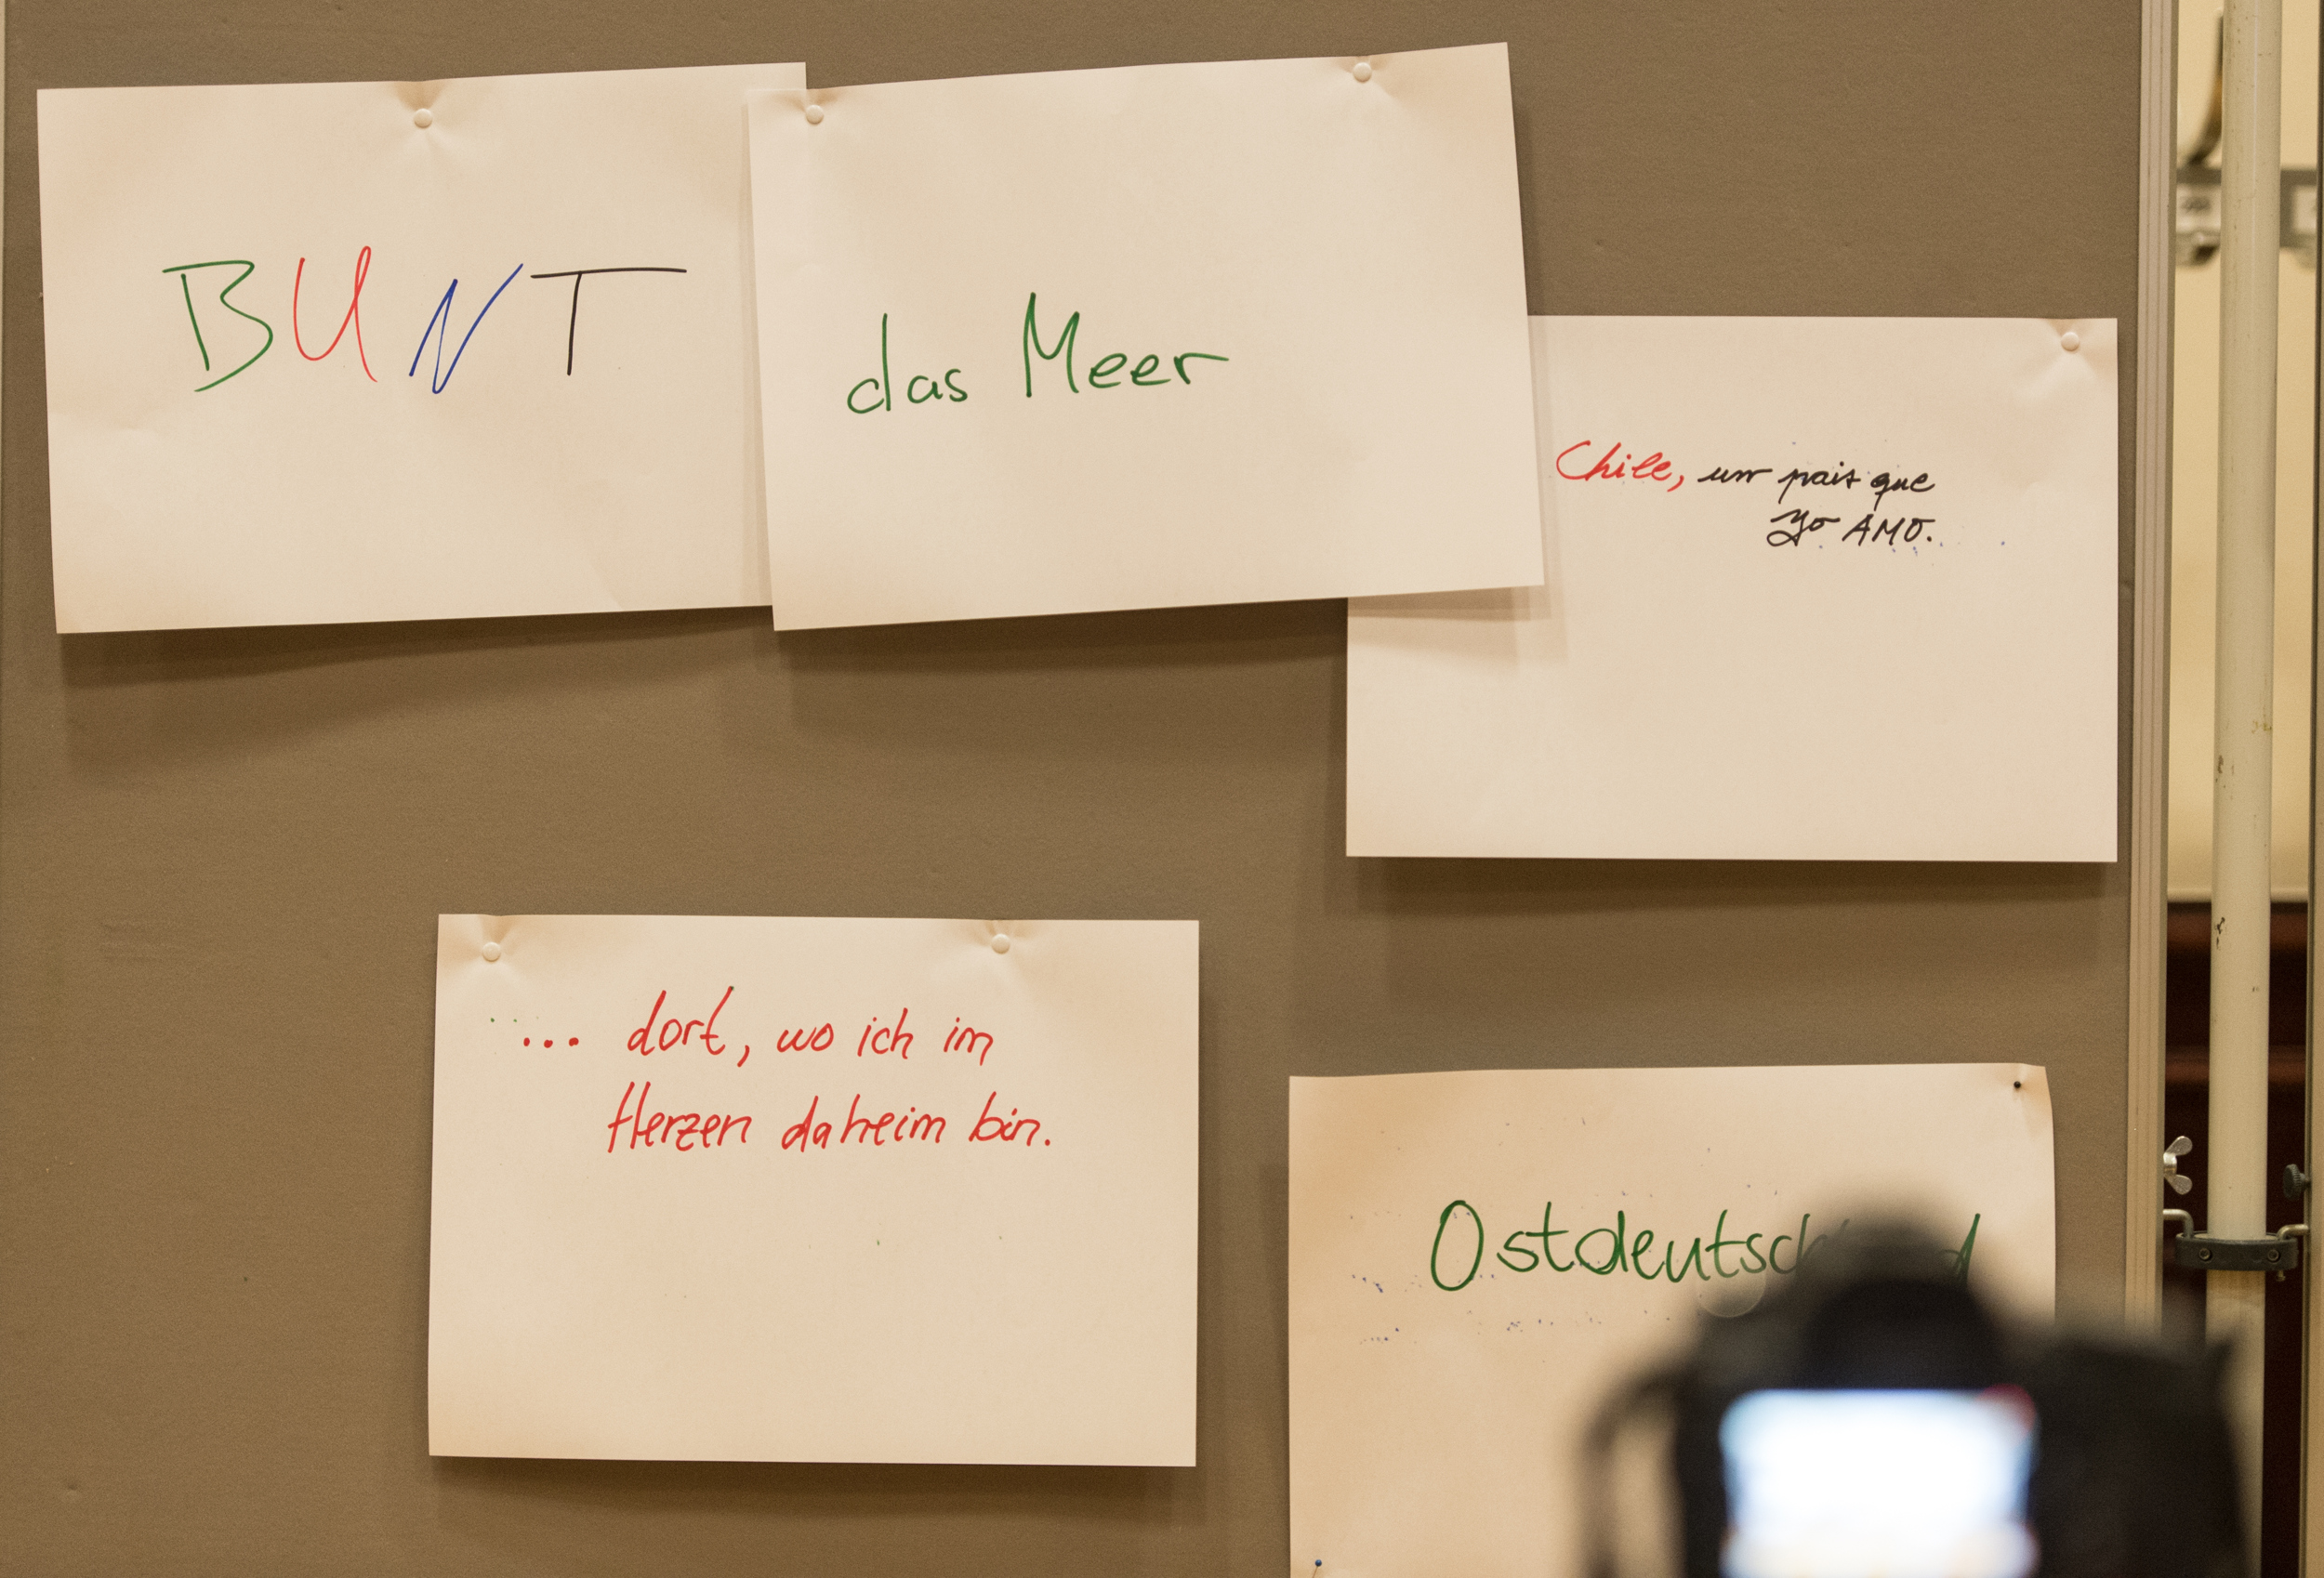 BUNT
das Meer
Chile, un pais que
yo AMO.
... dort, wo ich im
Herzen daheim bin.